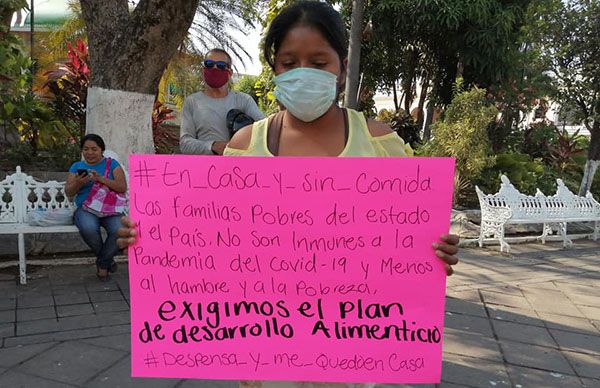 #En_Casa_y_sin_Comida
Las familias Pobres del estado
el País. No son Inmunes a la
Pandemia del Covid-19 y Menos
al hambre y a la Pobreza.
exigimos el Plan
de desarrollo Alimenticio
#Despensa_y_me_Quedoen Casa